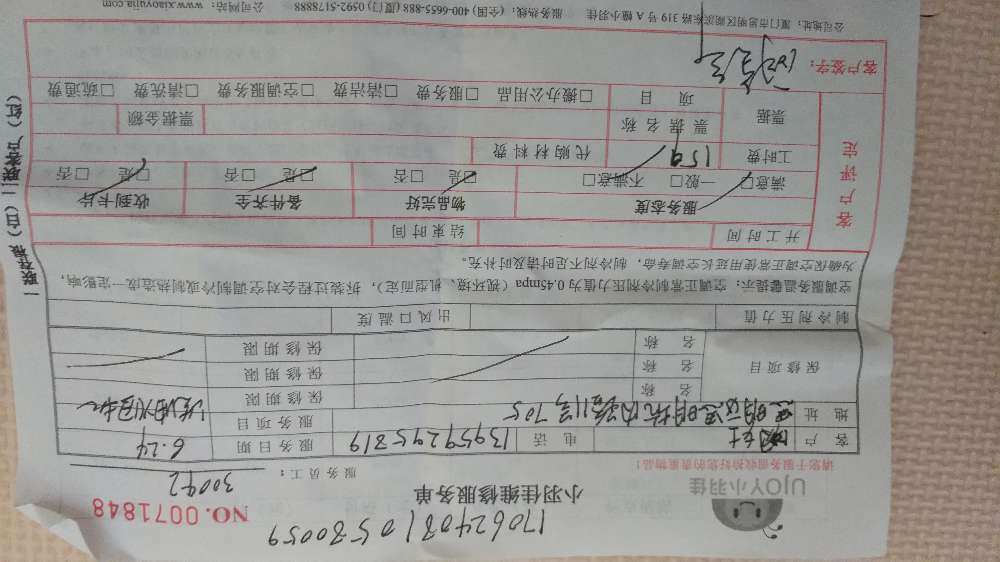 1706240810580059
小羽佳维修服务单
NO.0071848
UJOY小羽佳
请您于服务前收拾好您的贵重物品!
服务员工: 30092
客户 电话 13959295819 服务日期 6.24
地址 705 服务项目
保修项目
名称 保修期限
名称 保修期限
名称 保修期限
制冷剂压力值 出风口温度
空调服务温馨提示: 空调正常制冷剂压力值为0.45mpa (视环境、机型而定), 拆装过程会对空调制冷或制热造成一定影响,
为确保空调正常使用延长空调寿命, 制冷剂不足时请及时补充。
开工时间 结束时间
客户评定
服务态度 物品完好 备件齐全 收到卡片
满意□ 一般□ 不满意□ □是 □否 □是 □否 □是 □否
工时费 159 代购材料费
票据 票据名称 票据金额
项目 □搬办公用品 □服务费 □清洁费 □空调服务费 □清洗费 □疏通费
客户签字:
公司地址: 厦门市思明区湖滨东路319号A幢小羽佳 服务热线: (全国) 400-6655-888 (厦门) 0592-5178888 公司网站: www.xiaoyujia.com
一联存根 (白) 二联客户 (红)